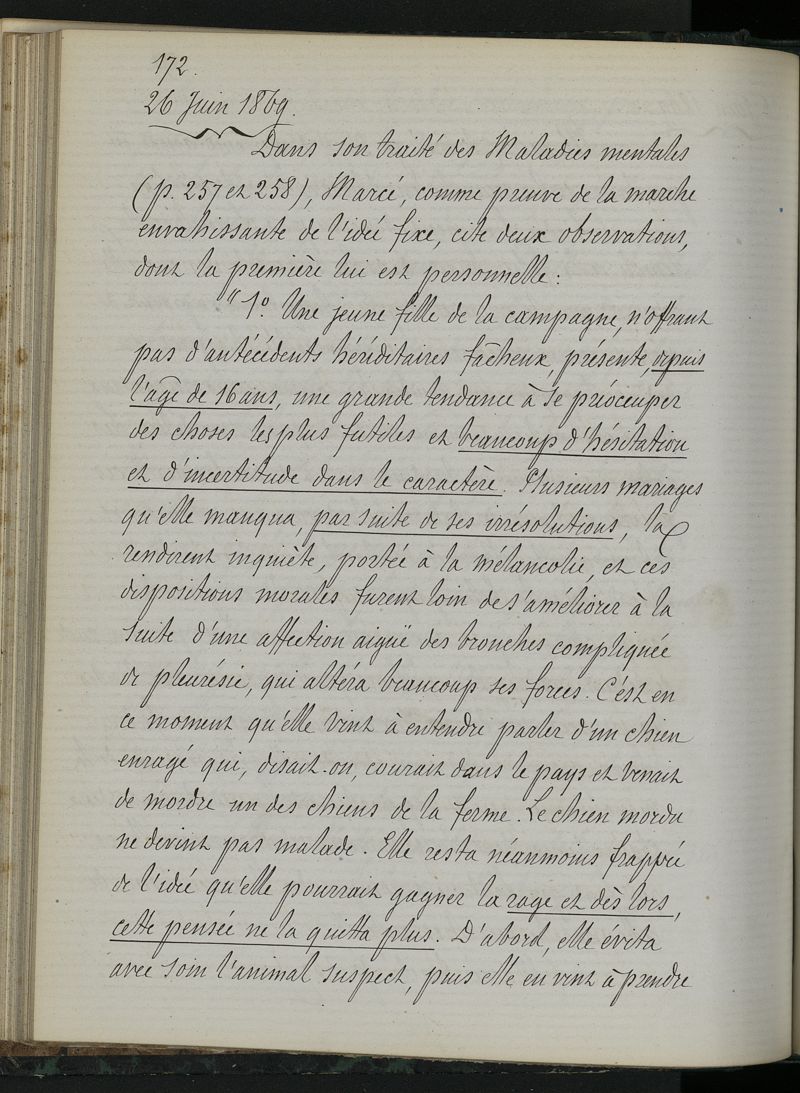 172.
26 Juin 1869.
Dans son traité des Maladies mentales
(p. 257 et 258), Marcé, comme preuve de la marche
envahissante de l'idée fixe, cite deux observations,
dont la première lui est personnelle :
"1º. Une jeune fille de la campagne, n'offrant
pas d'antécédents héréditaires fâcheux, présente, depuis
l'âge de 16 ans, une grande tendance à se préoccuper
des choses les plus futiles et beaucoup d'hésitation
et d'incertitude dans le caractère. Plusieurs mariages
qu'elle manqua, par suite de ses irrésolutions, la
rendirent inquiète, portée à la mélancolie, et ces
dispositions morales furent loin de s'améliorer à la
suite d'une affection aiguë des bronches compliquée
de pleurésie, qui altéra beaucoup ses forces. C'est en
ce moment qu'elle vint à entendre parler d'un chien
enragé qui, disait-on, courait dans le pays et venait
de mordre un des chiens de la ferme. Le chien mordu
ne devint pas malade. Elle resta néanmoins frappée
de l'idée qu'elle pourrait gagner la rage et dès lors,
cette pensée ne la quitta plus. D'abord, elle évita
avec soin l'animal suspect, puis elle en vint à prendre